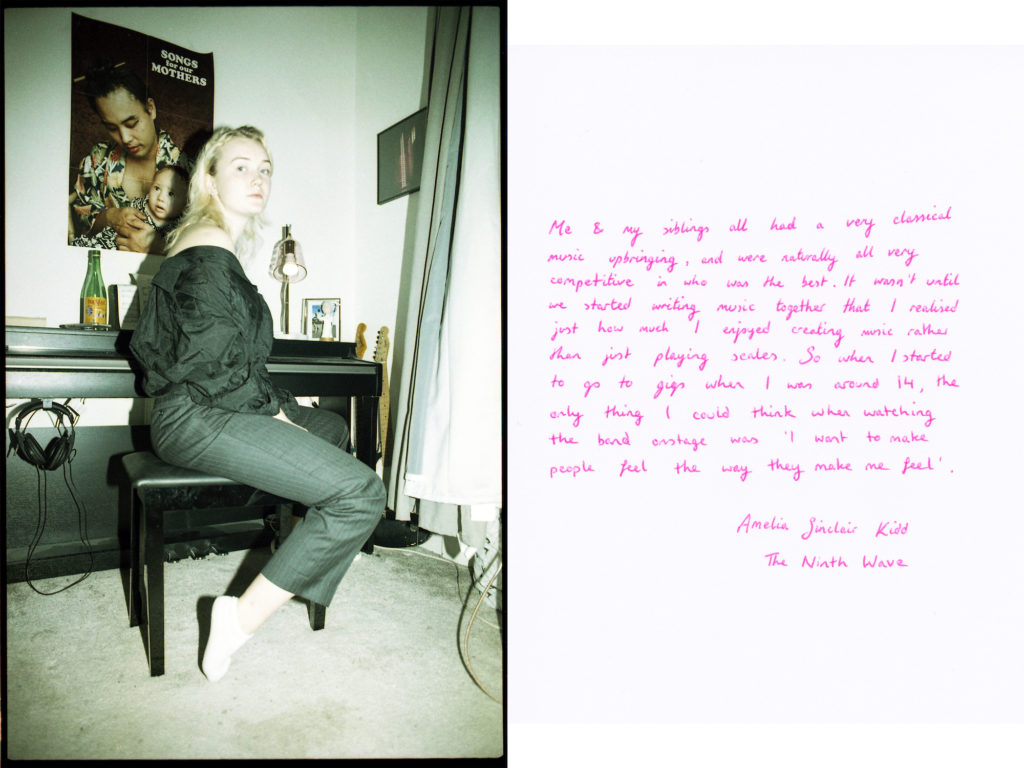 SONGS
for our
MOTHERS
Me & my siblings all had a very classical
music upbringing, and were naturally all very
competitive in who was the best. It wasn't until
we started writing music together that I realised
just how much I enjoyed creating music rather
than just playing scales. So when I started
to go to gigs when I was around 14, the
only thing I could think when watching
the band onstage was 'I want to make
people feel the way they make me feel'.
Amelia Sinclair Kidd
The Ninth Wave